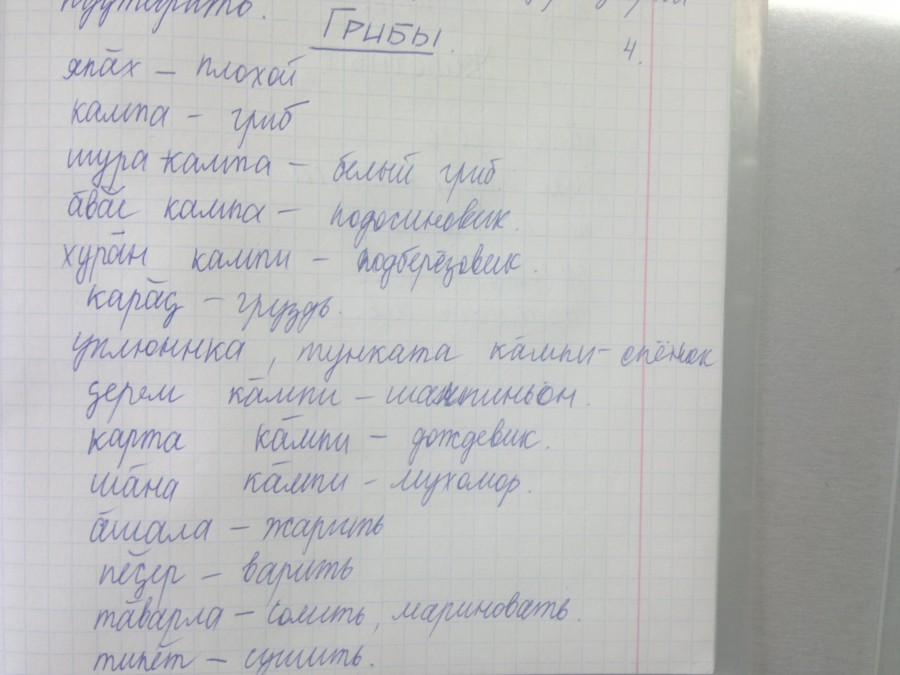 Грибы.
4.
япӑх – плохой
кампа – гриб
шура кампа – белый гриб
ӑвӑс кампа – подосиновик.
хурӑн кампи – подберёзовик.
карӑҫ – груздь.
уплюнкка, тунката кӑмпи – опёнок
ҫерем кӑмпи – шампиньон.
карта кӑмпи – дождевик.
шӑна кӑмпи – мухомор.
ӑшала – жарить
пӗҫер – варить
тӑварла – солить, мариновать.
типӗт – сушить.